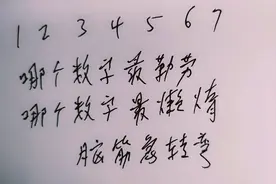 1 2 3 4 5 6 7
哪个数字最勤劳
哪个数字最懒惰
脑筋急转弯